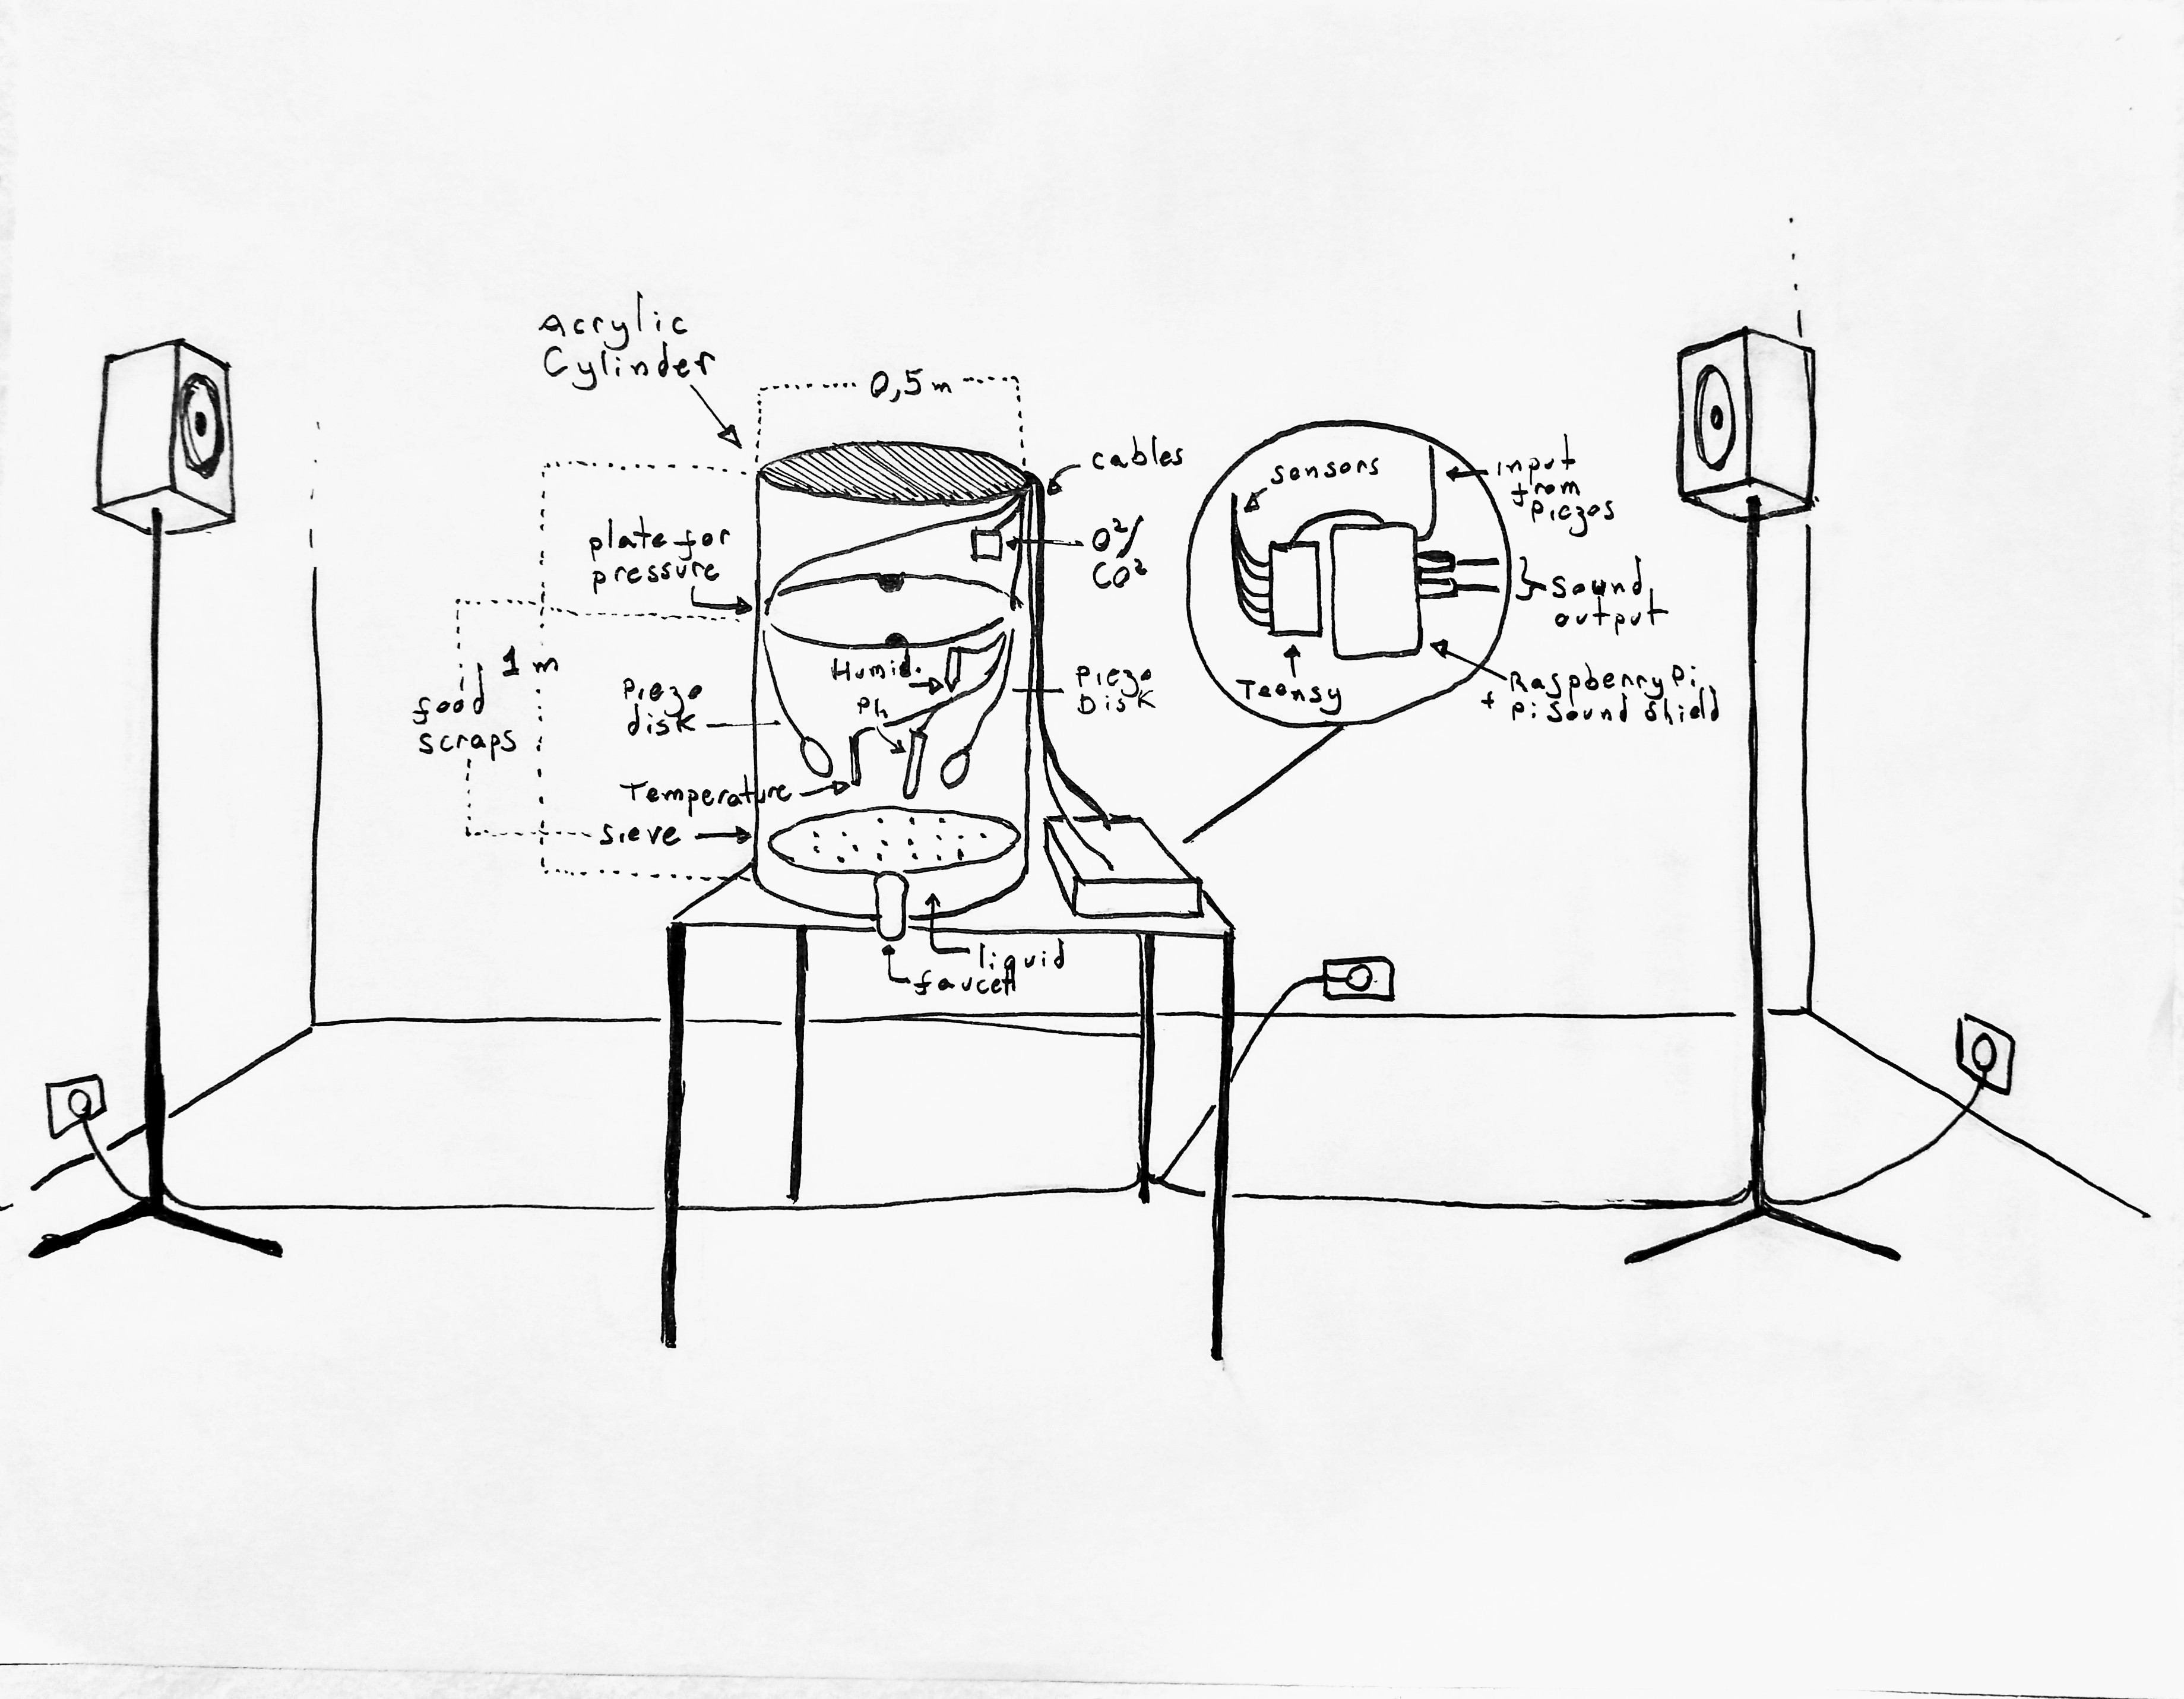 Acrylic
Cylinder
0,5 m
cables
plate for
pressure
O²/
CO²
1 m
food
scraps
Piezo
disk
Humid.
Ph
Piezo
Disk
Temperature
sieve
liquid
faucet
sensors
input
from
Piezos
Sound
output
Teensy
Raspberry Pi
+ Pi Sound Shield